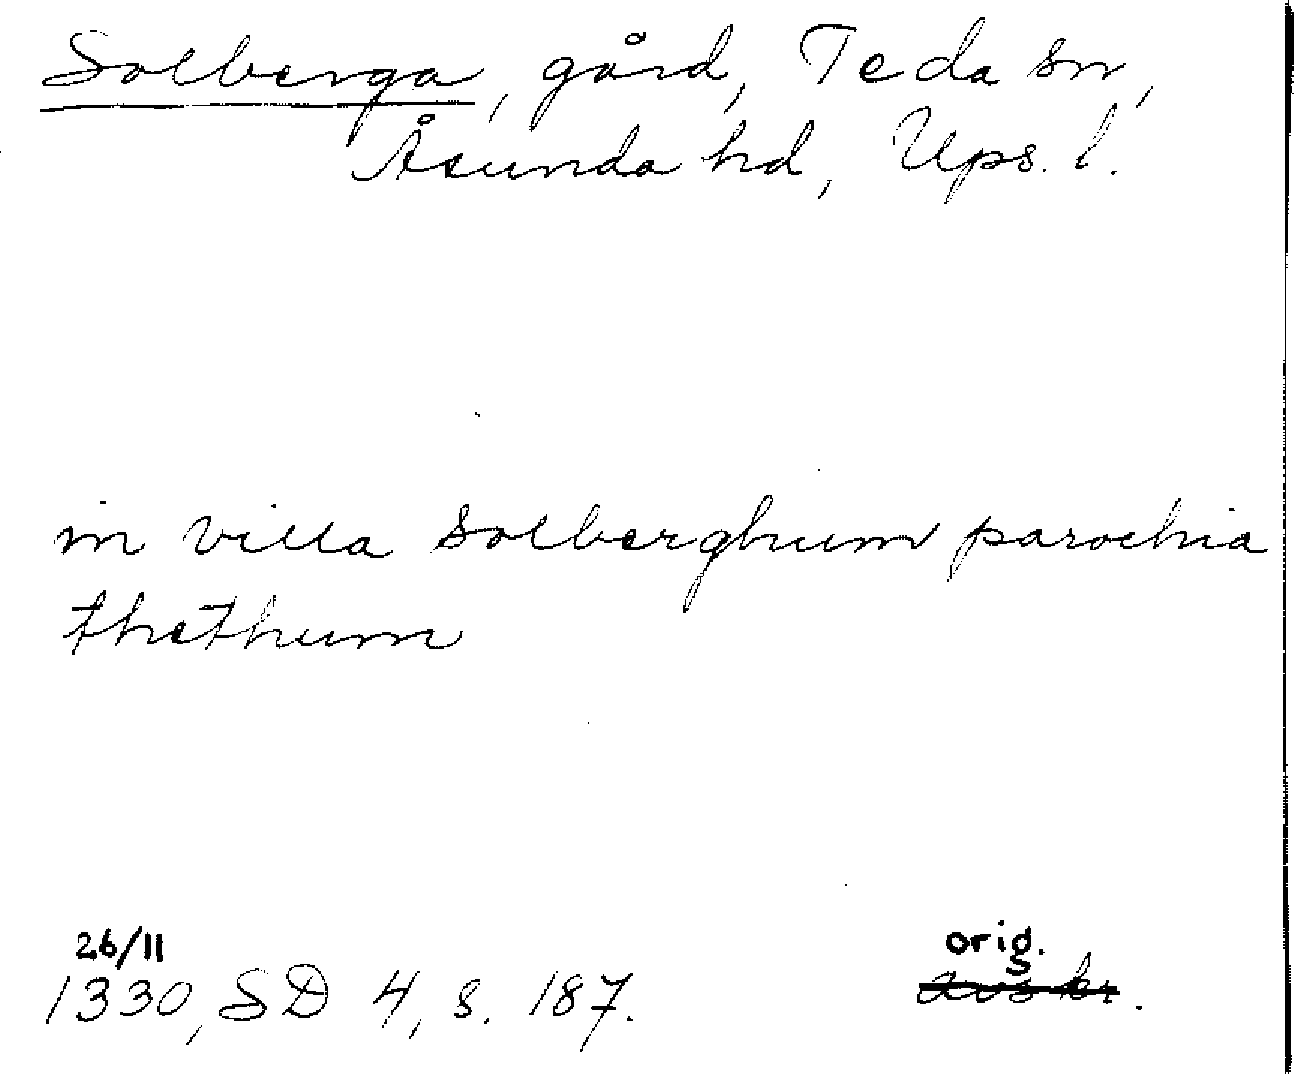 Solberga, gård, Teda sn,
Åsunda hd, Ups. l.
in villa solberghum parochia
thethum
26/11
1330, SD 4, s. 187.
orig.
avskr.